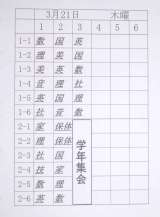 3月21日 木曜
1 2 3 4 5 6
1-1 数 国 英
1-2 理 美 国
1-3 美 英 数
1-4 音 理 社
1-5 英 国 理
1-6 社 音 数
2-1 家 保体 学年集会
2-2 理 保体
2-3 社 国
2-4 技 家
2-5 数 理
2-6 英 数